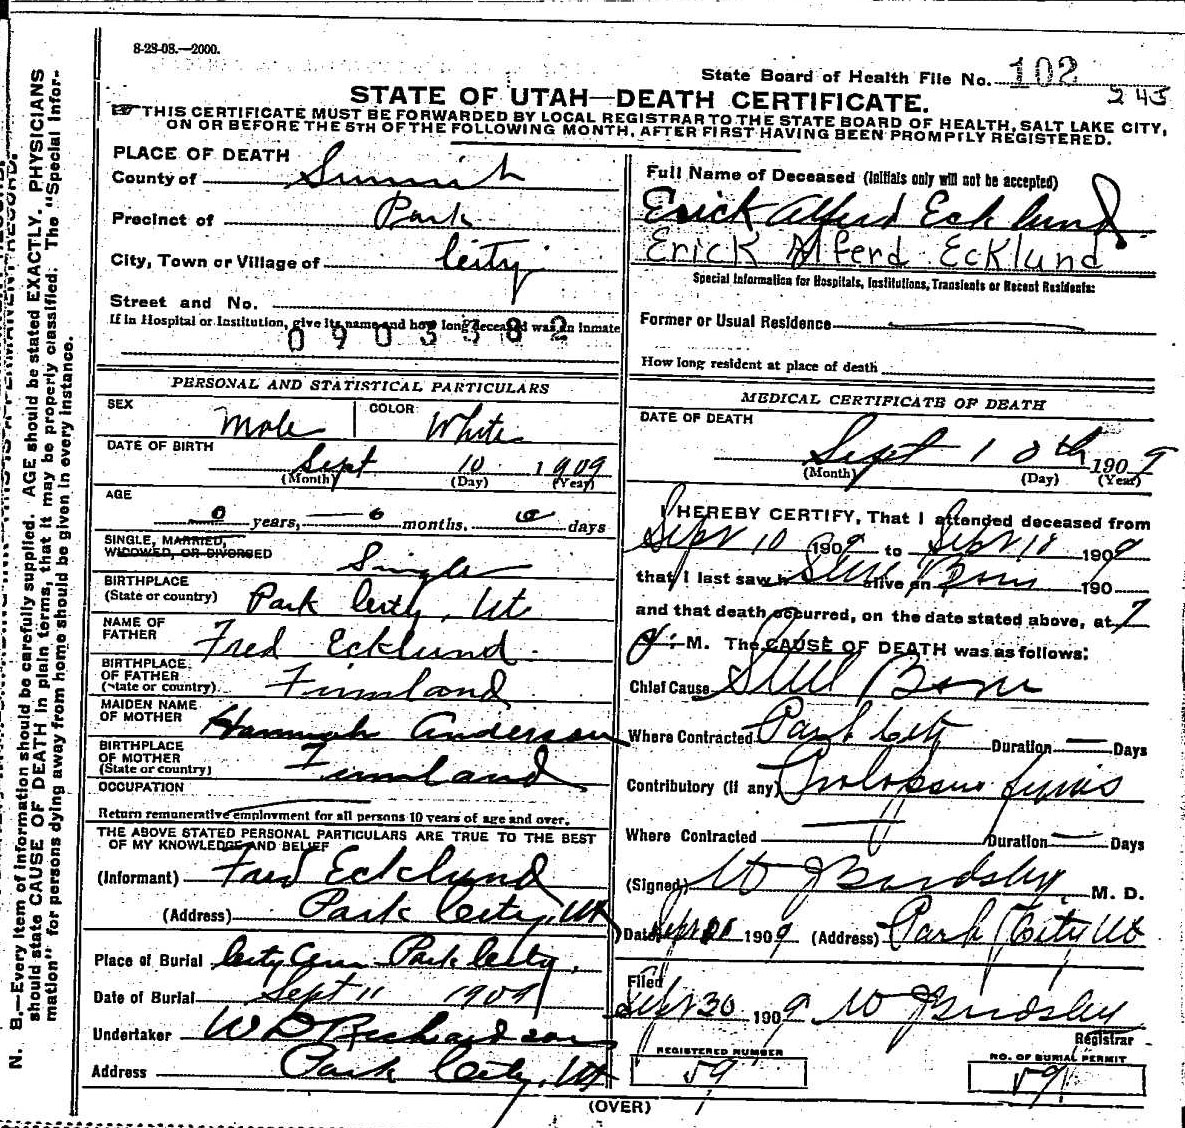 8-29-08.—2000.
State Board of Health File No. 102
243
STATE OF UTAH—DEATH CERTIFICATE.
THIS CERTIFICATE MUST BE FORWARDED BY LOCAL REGISTRAR TO THE STATE BOARD OF HEALTH, SALT LAKE CITY,
ON OR BEFORE THE 5TH OF THE FOLLOWING MONTH, AFTER FIRST HAVING BEEN PROMPTLY REGISTERED.
PLACE OF DEATH
County of Summit
Precinct of Park
City, Town or Village of City
Street and No.
If in Hospital or Institution, give its name and how long deceased was an inmate
0903382
PERSONAL AND STATISTICAL PARTICULARS
SEX Male COLOR White
DATE OF BIRTH
Sept 10 1909
(Month) (Day) (Year)
AGE
0 years, 0 months, 0 days
SINGLE, MARRIED,
WIDOWED, OR DIVORCED Single
BIRTHPLACE
(State or country) Park City, Ut
NAME OF
FATHER Fred Ecklund
BIRTHPLACE
OF FATHER
(State or country) Finnland
MAIDEN NAME
OF MOTHER Hannah Anderson
BIRTHPLACE
OF MOTHER
(State or country) Finnland
OCCUPATION
Return remunerative employment for all persons 10 years of age and over.
THE ABOVE STATED PERSONAL PARTICULARS ARE TRUE TO THE BEST
OF MY KNOWLEDGE AND BELIEF
(Informant) Fred Ecklund
(Address) Park City, Ut
Place of Burial City Cem Park City,
Date of Burial Sept 11 1909
Undertaker W D Richardson
Address Park City, Ut
Full Name of Deceased (Initials only will not be accepted)
Erick Alferd Ecklund
Erick Alferd Ecklund
Special Information for Hospitals, Institutions, Transients or Recent Residents:
Former or Usual Residence
How long resident at place of death
MEDICAL CERTIFICATE OF DEATH
DATE OF DEATH
Sept 10th 1909
(Month) (Day) (Year)
I HEREBY CERTIFY, That I attended deceased from
Sept 10 1909 to Sept 10 1909
that I last saw h Still alive on Born 190
and that death occurred, on the date stated above, at 7
M. The CAUSE OF DEATH was as follows:
Chief Cause Still Born
Where Contracted Park City Duration — Days
Contributory (if any) Prolapsus funis
Where Contracted — Duration — Days
(Signed) M. D.
Date Sept 1909 (Address) Park City Ut
Filed
Sept 30 1909
Registrar
REGISTERED NUMBER
59
NO. OF BURIAL PERMIT
59
(OVER)
N. B.—Every item of information should be carefully supplied. AGE should be stated EXACTLY. PHYSICIANS
should state CAUSE OF DEATH in plain terms, that it may be properly classified. The "Special Infor-
mation" for persons dying away from home should be given in every instance.